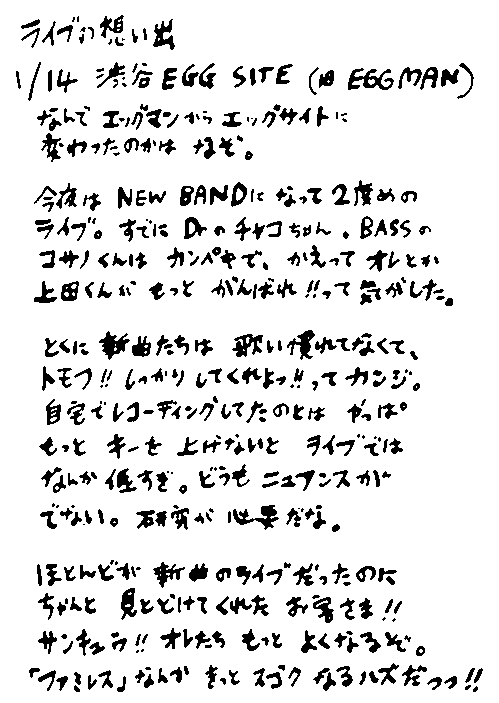 ライブの想い出
1/14 渋谷 EGG SITE (旧 EGGMAN)
なんで エッグマンから エッグサイトに
変わったのかは なぞ。
今夜は NEW BANDに なって 2度めの
ライブ。すでに Drの チャコちゃん、BASSの
コサノくんは カンペキで、かえって オレとか
上田くんが もっと がんばれ!!って 気がした。
とくに 新曲たちは 歌い慣れてなくて、
トモフ!! しっかり してくれよっ!! って カンジ。
自宅でレコーディングしてたのとは やっぱ
もっと キーを 上げないと ライブでは
なんか 低すぎ。どうも ニュアンスが
でない。研究が 必要だな。
ほとんどが 新曲のライブだったのに
ちゃんと 見とどけてくれた お客さま!!
サンキュウ!! オレたち もっと よくなるぞ。
「ファミレス」なんか きっと スゴク なるハズだっっ!!